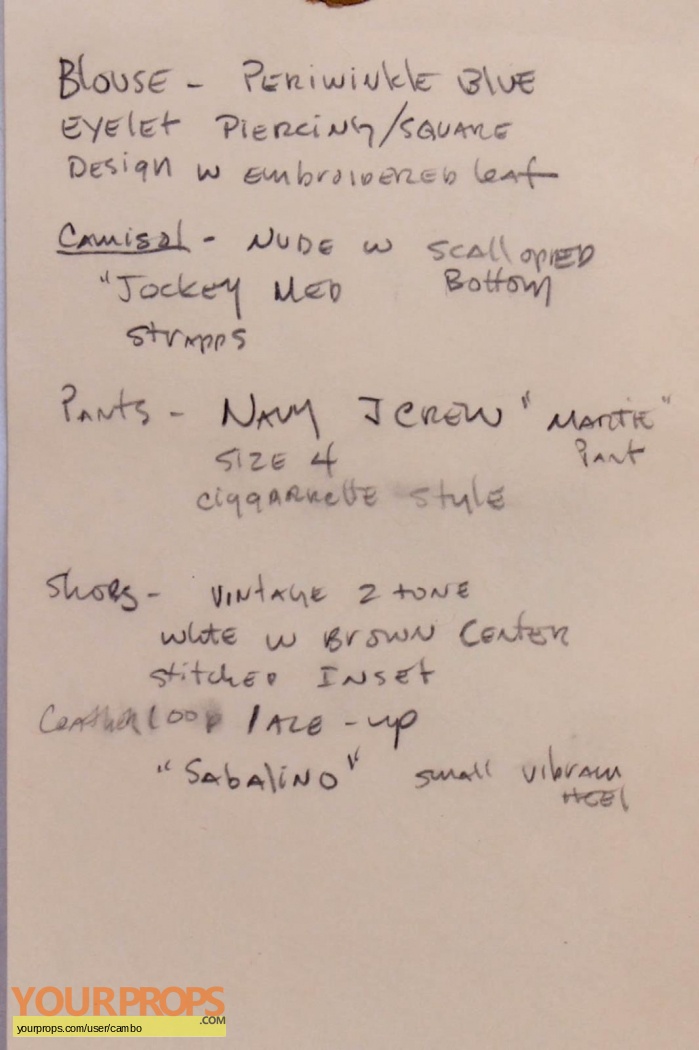 Blouse - Periwinkle Blue
Eyelet Piercing/square
Design w embroidered leaf
Camisol - Nude w scallopied
"Jockey Med Bottom
strapps
Pants - Navy J Crew "Martie"
size 4 Pant
ciggarrette style
Shoes - vintage 2 tone
white w Brown Center
stitched Inset
Leather loop lace-up
"Sabalino" small vibram
Heel
YOURPROPS
.COM
yourprops.com/user/cambo